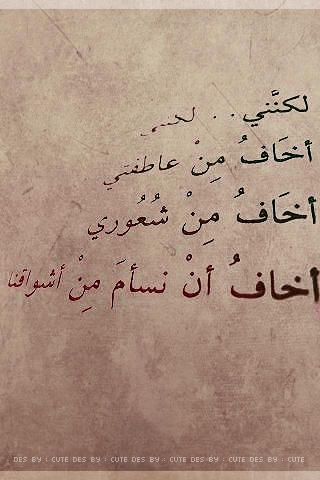 لكنَّني . . لكنني
أخَافُ مِنْ عاطفتي
أخَافُ مِنْ شُعُوري
أخافُ أنْ نسأمَ مِنْ أشواقنا
DES BY : CUTE DES BY : CUTE DES BY : CUTE DES BY : CUTE DES BY : CUTE